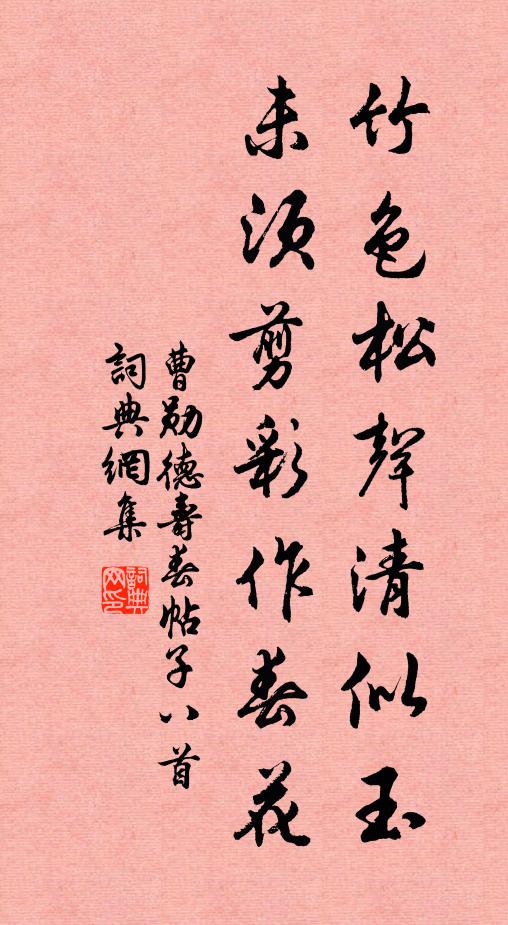 竹色松聲清似玉
未須剪彩作春花
曹勛德壽春帖子八首
詞典網集
詞典网印